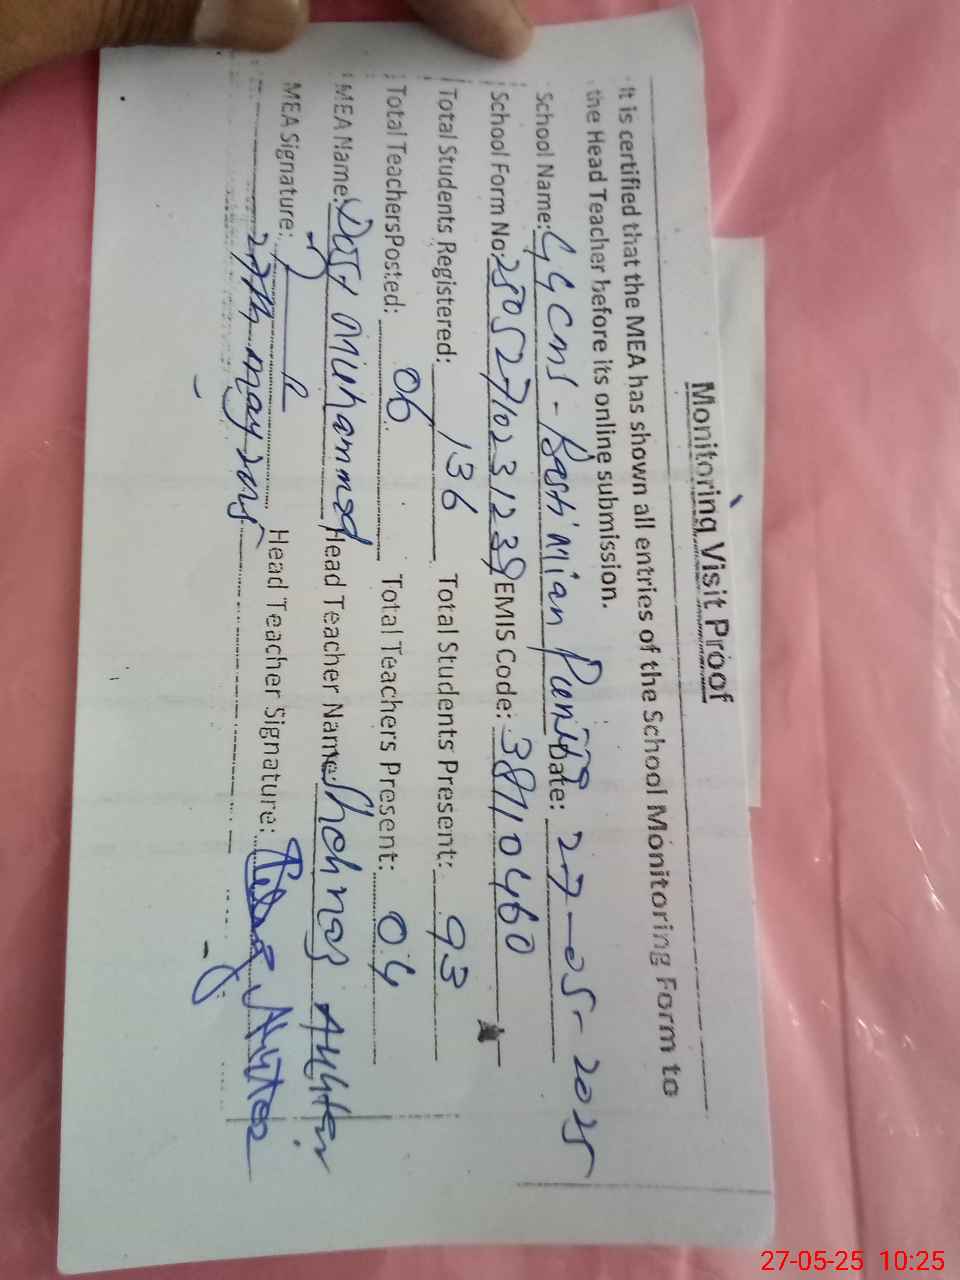 Monitoring Visit Proof
It is certified that the MEA has shown all entries of the School Monitoring Form to
the Head Teacher before its online submission.
School Name: GGCMS - Basti Mian Date: 27-05-2025
School Form No: EMIS Code: 38110460
Total Students Registered: 136 Total Students Present: 93
Total TeachersPosted: 06 Total Teachers Present: 04
MEA Name: Dost Muhammad Head Teacher Name:
MEA Signature: Head Teacher Signature:
27th may 2025
27-05-25 10:25